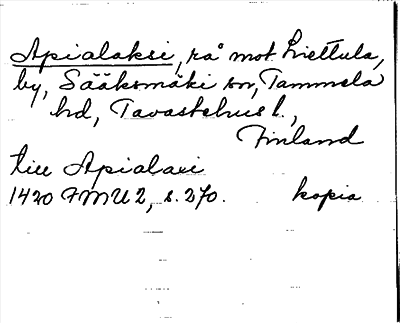 Apialaksi, rå mot Liettula,
by, Sääksmäki sn, Tammela
hd, Tavastehus l.,
Finland
till Apialaxi
1420 FMU 2, s. 270. kopia